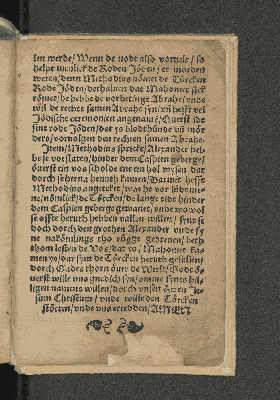 len werde / Wenn de nodt also vorhele / so
helpt menlick de Roden Jöden / er morden
weren / denn Methodius nömet de Törcken
Rode Jöden / derhaluen dat Mahomet sick
römet / he hebbe de vorhetinge Abrahe / vnde
wil de rechte samen Abrahe syn / vn hefft vel
Jödische ceremonien angenamen / Ouerst jdt
sint rode Jöden / dat ys blodthünde vn mör
ders / vorvolgen den rechten samen Abrahe.
Item / Methodius sprickt / Alexander heb
be se vorslaten / hinder dem Caspien geberge /
ouerst ein vos scholde em ein hol wysen dar
dorch se herna heruth kamen / Darmit hefft
Methodius angetekt / wat he vor lüde me-
ne / nömlick / de Törcken / de lange tidt hinder
dem Caspien geberge gewanet / vnde wo wol
se offte heruth hebben vallen willen / synt se
doch dorch den grothen Alexander vnde sy-
ne nakömlinge tho rügge gedreuen / beth
tho
men ys / dar syn de Törcken heruth gefallen /
dorch Gades thorn öuer de Werlt / Godt ö-
uerst wille vns gnedich syn / vmme synes hil-
ligen namens willen / dorch vnsen Heren Je-
sum Christum / vnde wille den Törcken
störten / vnde vns erredden / AMEN